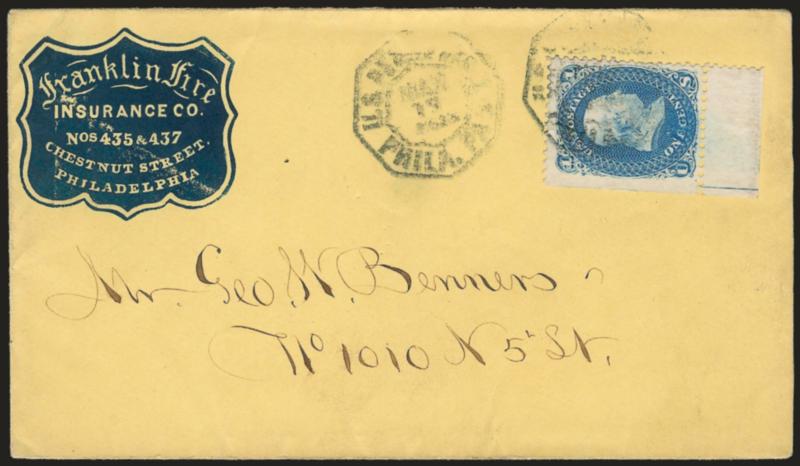 Franklin Fire
INSURANCE CO.
NOS 435 & 437
CHESTNUT STREET.
PHILADELPHIA
U.S. P.
PHILA. PA
U.S. POSTAGE
ONE CENT
Mr. Geo. W. Benners
No 1010 N 5th St.